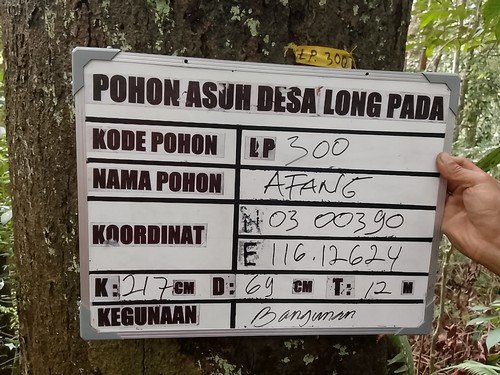 LP. 300
POHON ASUH DESA LONG PADA
KODE POHON LP 300
NAMA POHON AFANG
KOORDINAT N 03 00390
E 116.12624
K: 217 CM D: 69 CM T: 12 M
KEGUNAAN Bangunan